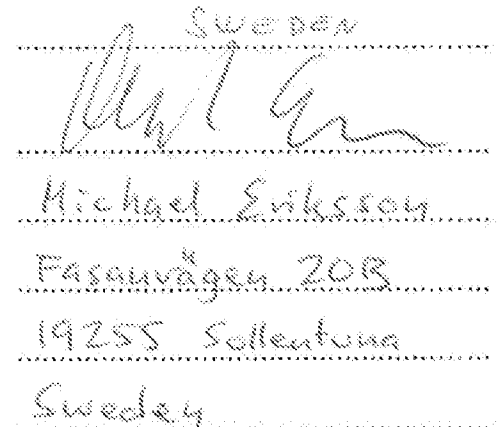 SWEDEN
Michael Eriksson
Fasanvägen 20B
19255 Sollentuna
Sweden